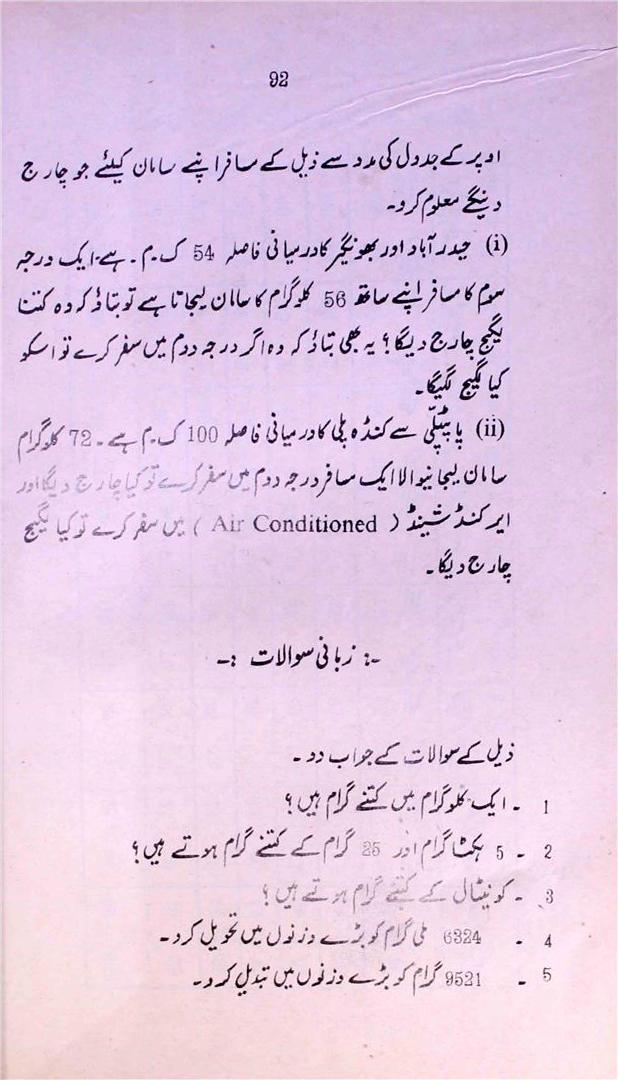 92
اوپر کے جدول کی مدد سے ذیل کے مسافر اپنے سامان کیلئے جو چارج
دینگے معلوم کرو۔
(i) حیدرآباد اور بھونگیر کا درمیانی فاصلہ 54 ک.م۔ ہے۔ ایک درجہ
سوم کا مسافر اپنے ساتھ 56 کلوگرام کا سامان لیجاتا ہے تو بتاؤ کہ وہ کتنا
لگیج چارج دیگا؟ یہ بھی بتاؤ کہ وہ اگر درجہ دوم میں سفر کرے تو اسکو
کیا لگیج لگیگا۔
(ii) باپٹلی سے کنڈہ پلی کا درمیانی فاصلہ 100 ک.م ہے۔ 72 کلوگرام
سامان لیجانیوالا ایک مسافر درجہ دوم میں سفر کرے تو کیا چارج دیگا اور
ایرکنڈشینڈ (Air Conditioned) میں سفر کرے تو کیا لگیج
چارج دیگا۔
-: زبانی سوالات :-
ذیل کے سوالات کے جواب دو۔
1 ۔ ایک کلوگرام میں کتنے گرام ہیں؟
2 ۔ 5 ہکٹاگرام اور 25 گرام کے کتنے گرام ہوتے ہیں؟
3 ۔ کونیٹال کے کتنے گرام ہوتے ہیں؟
4 ۔ 6324 ملی گرام کو بڑے وزنوں میں تحویل کرو۔
5 ۔ 9521 گرام کو بڑے وزنوں میں تبدیل کرو۔